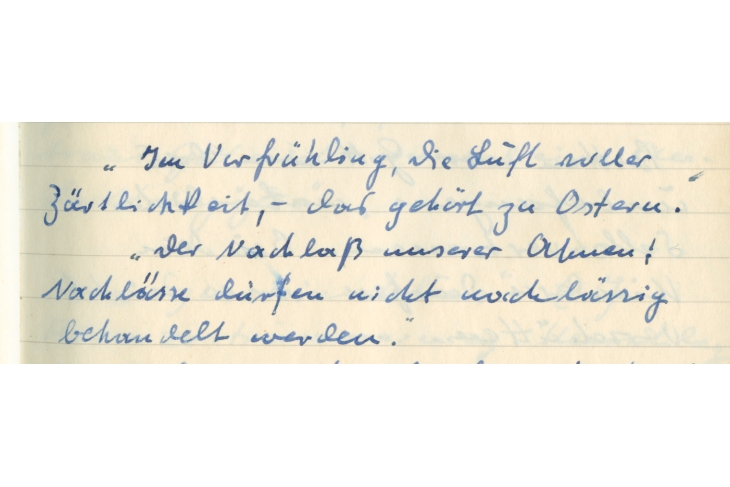 „Im Vorfrühling, die Luft voller
Zärtlichkeit, – das gehört zu Ostern."
„Der Nachlaß unserer Ahnen!
Nachlässe dürfen nicht nachlässig
behandelt werden."